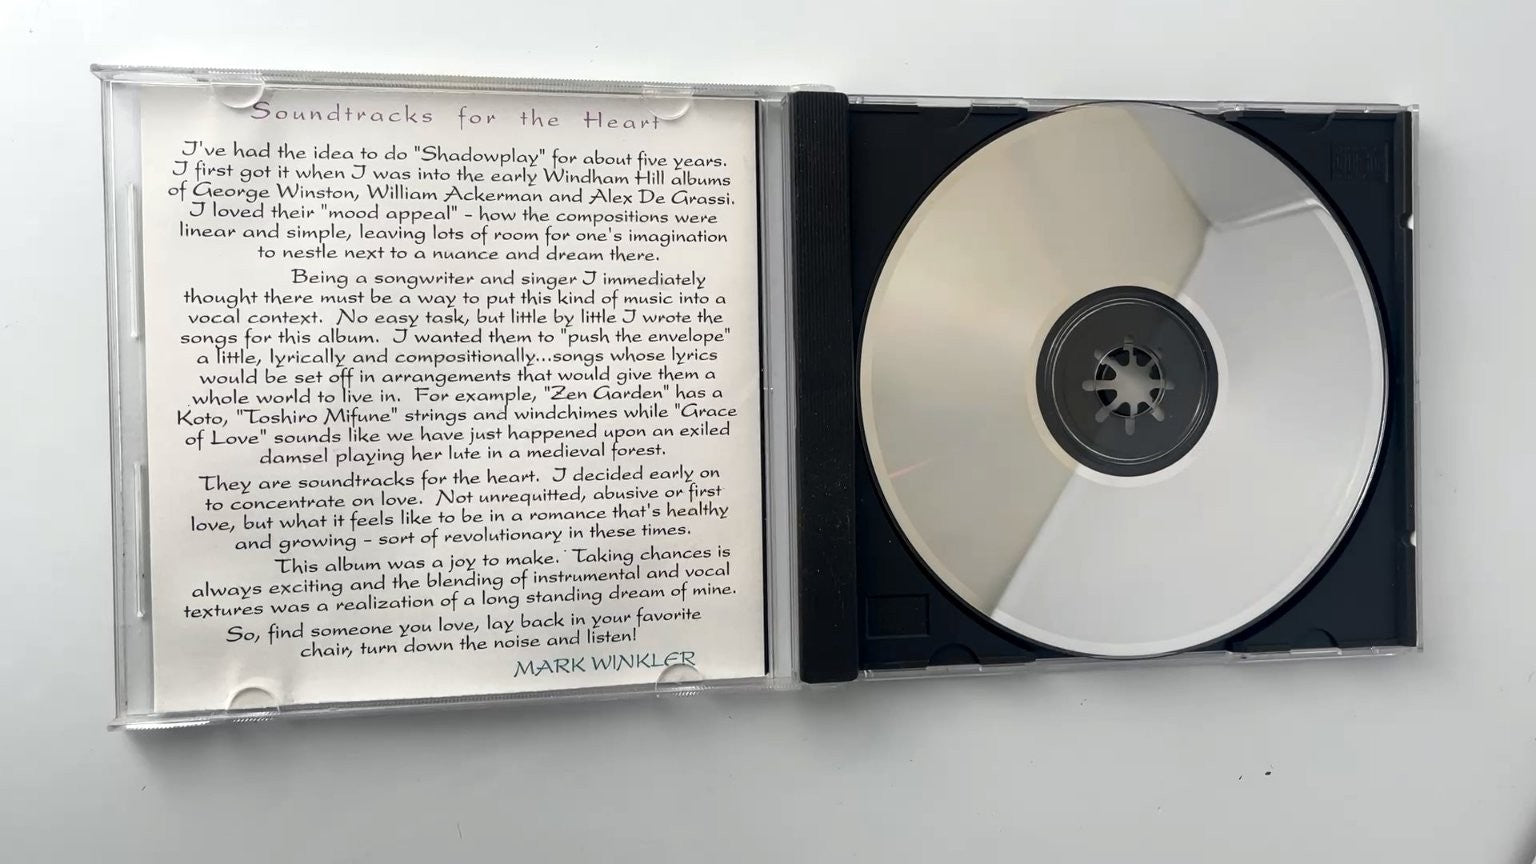 Soundtracks for the Heart
I've had the idea to do "Shadowplay" for about five years.
I first got it when I was into the early Windham Hill albums
of George Winston, William Ackerman and Alex De Grassi.
I loved their "mood appeal" - how the compositions were
linear and simple, leaving lots of room for one's imagination
to nestle next to a nuance and dream there.
Being a songwriter and singer I immediately
thought there must be a way to put this kind of music into a
vocal context. No easy task, but little by little I wrote the
songs for this album. I wanted them to "push the envelope"
a little, lyrically and compositionally...songs whose lyrics
would be set off in arrangements that would give them a
whole world to live in. For example, "Zen Garden" has a
Koto, "Toshiro Mifune" strings and windchimes while "Grace
of Love" sounds like we have just happened upon an exiled
damsel playing her lute in a medieval forest.
They are soundtracks for the heart. I decided early on
to concentrate on love. Not unrequitted, abusive or first
love, but what it feels like to be in a romance that's healthy
and growing - sort of revolutionary in these times.
This album was a joy to make. Taking chances is
always exciting and the blending of instrumental and vocal
textures was a realization of a long standing dream of mine.
So, find someone you love, lay back in your favorite
chair, turn down the noise and listen!
MARK WINKLER